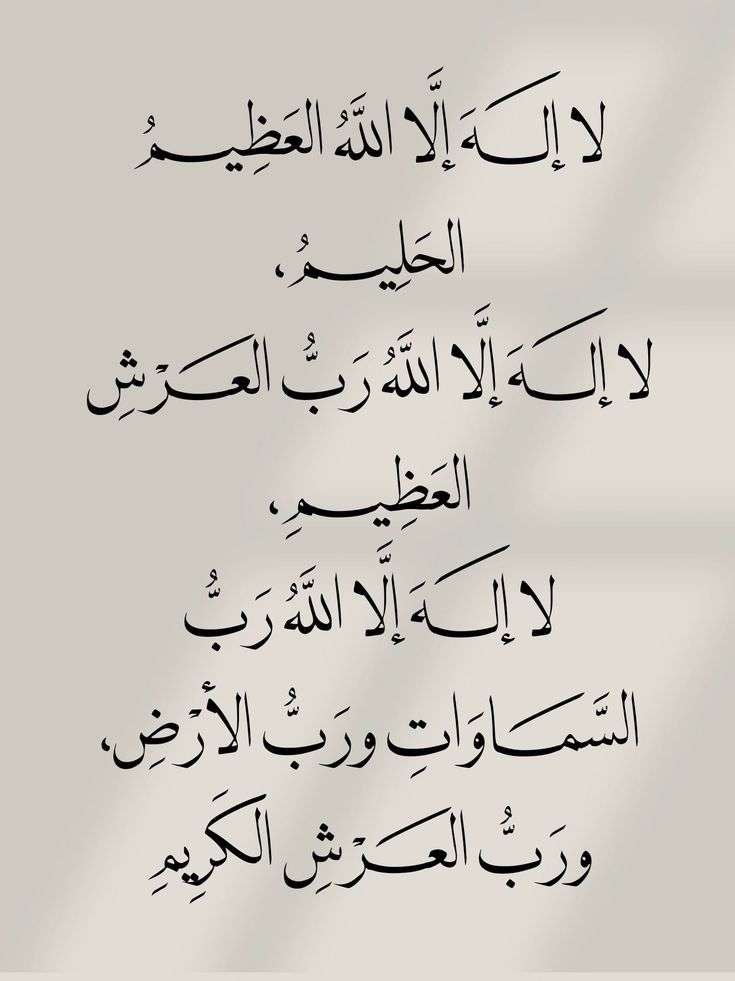 لا إلـهَ إلَّا اللَّهُ العَظِيـمُ
الحَلِيـمُ،
لا إلـهَ إلَّا اللَّهُ رَبُّ العَـرْشِ
العَظِيـمِ،
لا إلـهَ إلَّا اللَّهُ رَبُّ
السَّمـَاوَاتِ ورَبُّ الأرْضِ،
ورَبُّ العَـرْشِ الكَرِيمِ